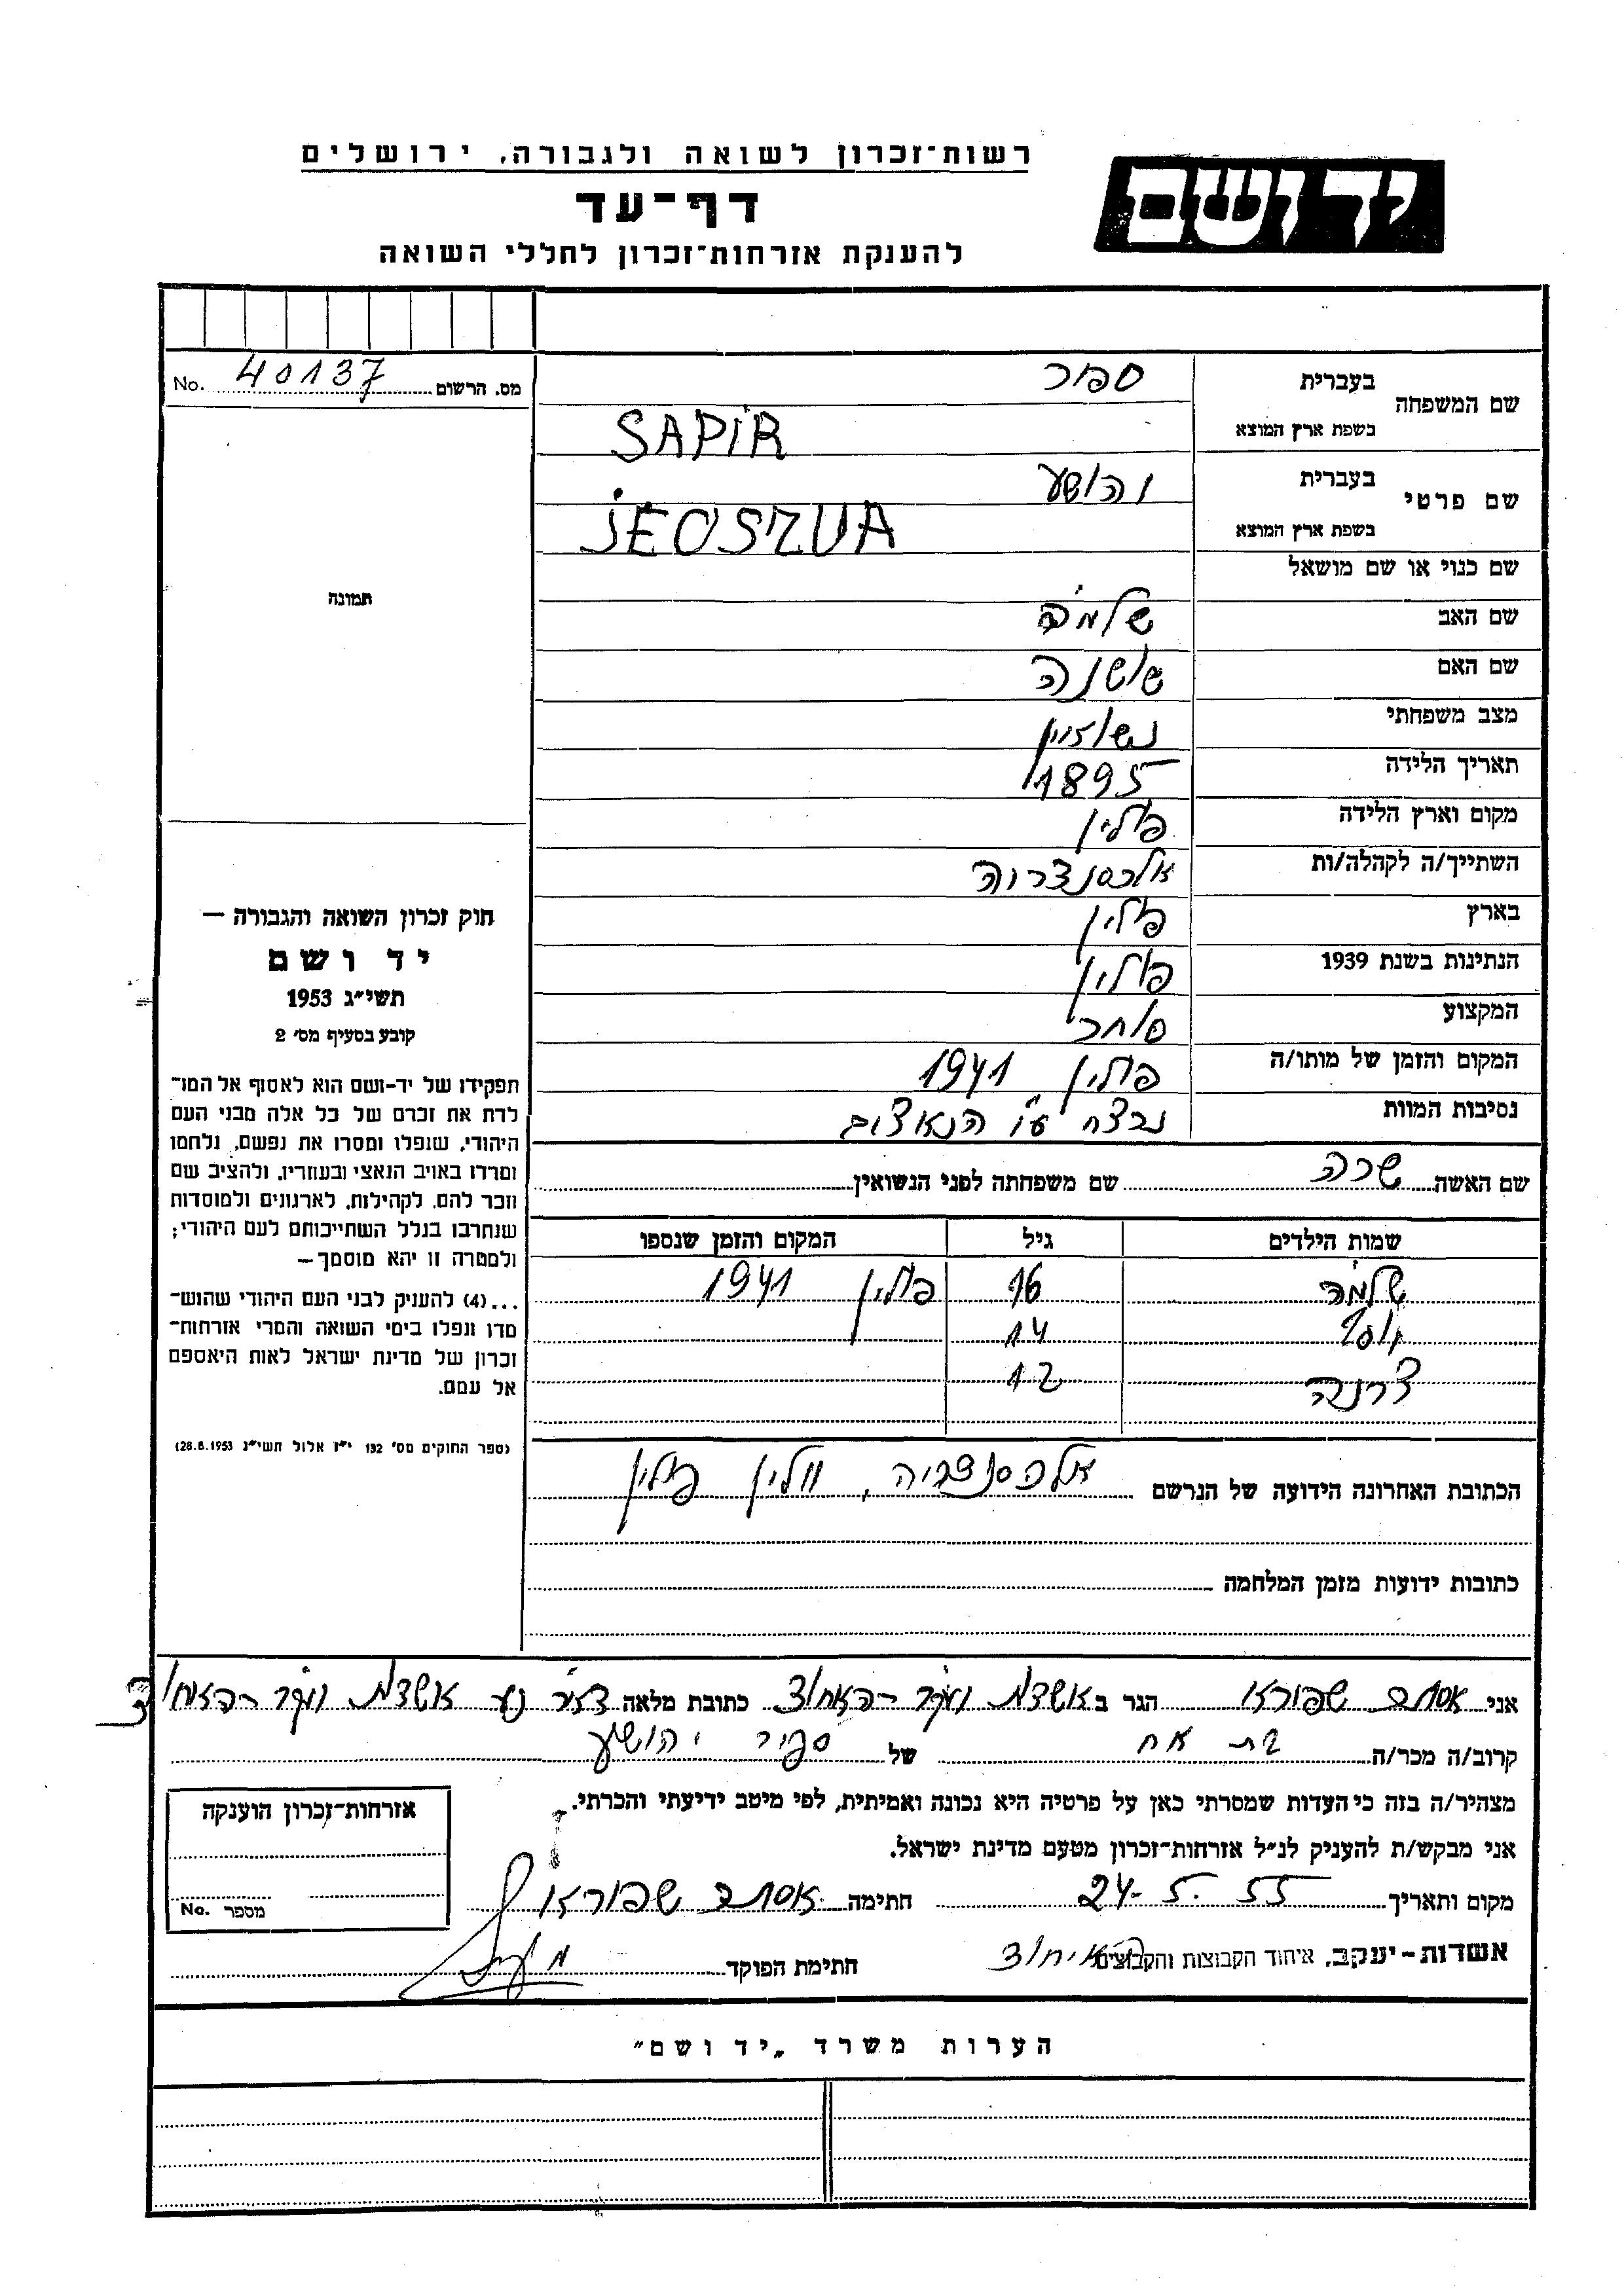 רשות־זכרון לשואה ולגבורה, ירושלים
יד ושם
דף־עד
להענקת אזרחות־זכרון לחללי השואה
מס. הרשום 40137 No.
שם המשפחה בעברית ספיר
בשפת ארץ המוצא SAPIR
שם פרטי בעברית יהושע
בשפת ארץ המוצא JEOSZUA
שם כנוי או שם מושאל
שם האב שלמה
שם האם שושנה
מצב משפחתי נשוי
תאריך הלידה 1895
מקום וארץ הלידה פולין
השתייך/ה לקהלה/ות אלכסנדריה
בארץ פולין
הנתינות בשנת 1939 פולין
המקצוע סוחר
המקום והזמן של מותו/ה פולין 1941
נסיבות המוות נרצח ע"י הנאצים
שם האשה שרה שם משפחתה לפני הנשואין
שמות הילדים גיל המקום והזמן שנספו
שלמה 16 פולין 1941
14
12
הכתובת האחרונה הידועה של הנרשם אלכסנדריה, ווהלין פולין
כתובות ידועות מזמן המלחמה
תמונה
חוק זכרון השואה והגבורה —
יד ושם
תשי״ג 1953
קובע בסעיף מס׳ 2
תפקידו של יד-ושם הוא לאסוף אל המו־
לדת את זכרם של כל אלה מבני העם
היהודי, שנפלו ומסרו את נפשם, נלחמו
ומרדו באויב הנאצי ובעוזריו, ולהציב שם
וזכר להם, לקהילות, לארגונים ולמוסדות
שנחרבו בגלל השתייכותם לעם היהודי;
ולמטרה זו יהא מוסמך —
...(4) להעניק לבני העם היהודי שהוש־
מדו ונפלו בימי השואה והמרי אזרחות־
זכרון של מדינת ישראל לאות היאספם
אל עמם.
(ספר החוקים מס׳ 132 י״ז אלול תשי״ג 28.8.1953)
אני אסתר שפירא הגר ב אשדות יעקב - האחוד כתובת מלאה ד.נ. אשדות יעקב - האחוד
קרוב/ה מכר/ה בת אח של ספיר יהושע
מצהיר/ה בזה כי העדות שמסרתי כאן על פרטיה היא נכונה ואמיתית, לפי מיטב ידיעתי והכרתי.
אני מבקש/ת להעניק לנ״ל אזרחות־זכרון מטעם מדינת ישראל.
מקום ותאריך 24.5.55 חתימה אסתר שפירא
אשדות-יעקב, איחוד הקבוצות והקבוצים האיחוד חתימת הפוקד
אזרחות־זכרון הוענקה
מספר No.
הערות משרד „יד ושם״